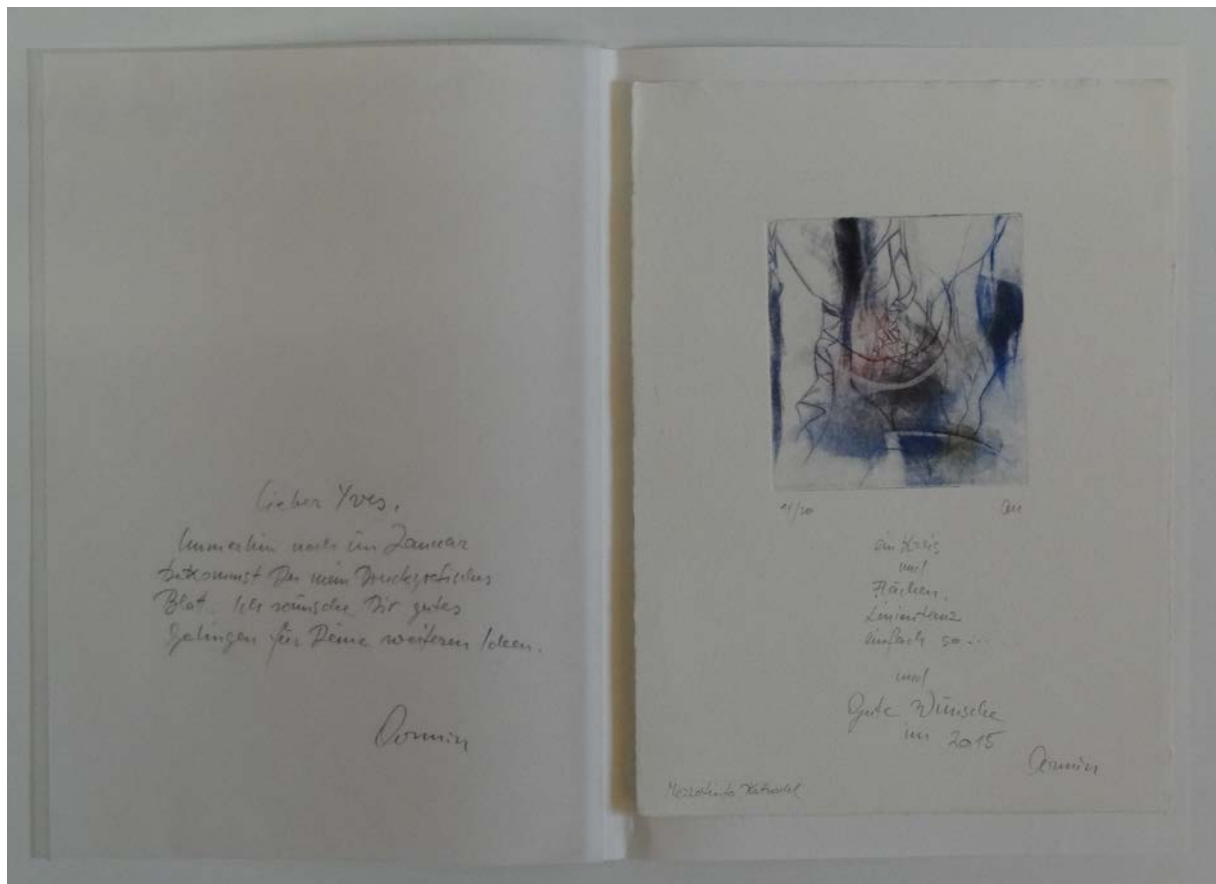 Lieber Yves,
Immerhin noch im Januar
bekommst Du mein Druckgrafisches
Blat. Ich wünsche Dir gutes
Gelingen für Deine weiteren Ideen.
Armin
/20
ein Kreis
und
Flächen,
Linientanz
einfach so...
und
Gute Wünsche
im 2015
Armin
Mezzotinto